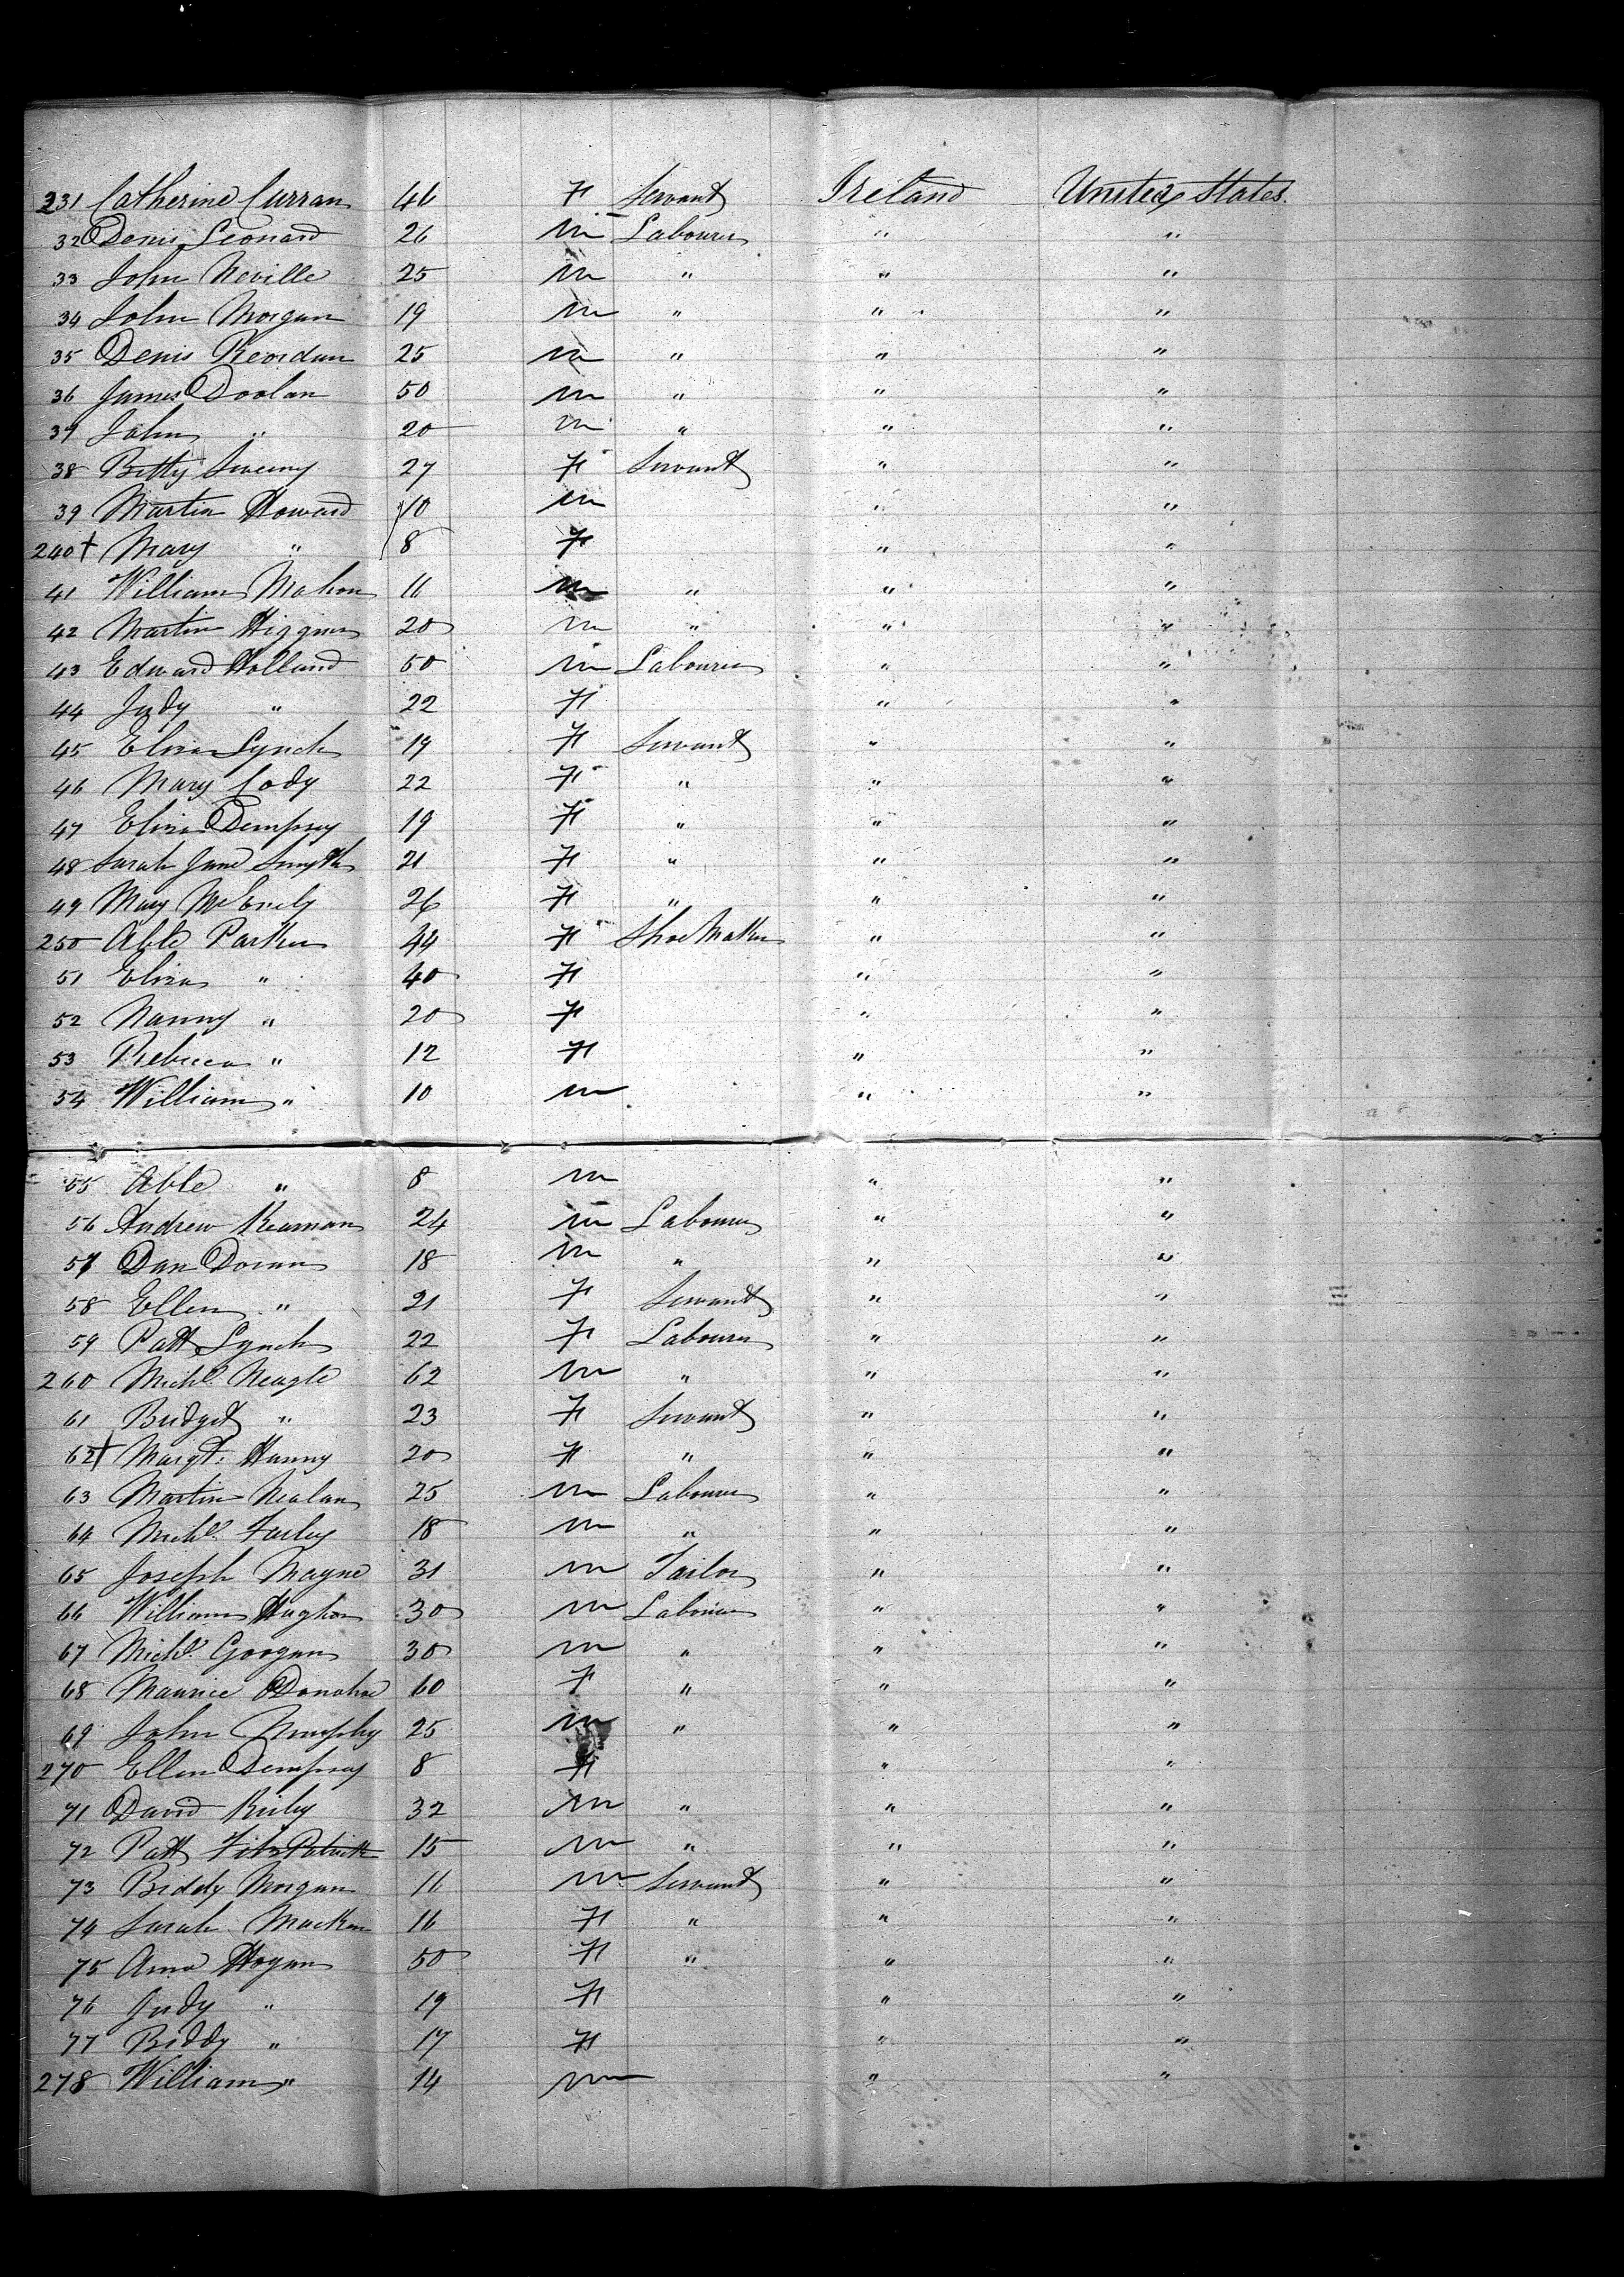 231 Catherine Curran 46 F Servant Ireland United States.
32 Denis Leonard 26 m Labourer " "
33 John Neville 25 m " " "
34 John Morgan 19 m " " "
35 Denis Reordan 25 m " " "
36 James Doolan 50 m " " "
37 John " 20 m " " "
38 Betty Sweeny 27 F Servant " "
39 Martin Howard 10 m " "
240 + Mary " 8 F " "
41 William Mahon 11 m " " "
42 Martin Higgins 20 m " " "
43 Edward Holland 50 m Labourer " "
44 Judy " 22 F " "
45 Eliza Lynch 19 F Servant " "
46 Mary Cody 22 F " " "
47 Eliza Dempsey 19 F " " "
48 Sarah Jane Smyth 21 F " " "
49 Mary 26 F " " "
250 Able Parker 44 F Shoe Maker " "
51 Eliza " 40 F " "
52 Nanny " 20 F " "
53 Rebecca " 12 F " "
54 William " 10 m " "
55 Able " 8 m " "
56 Andrew 24 m Labourer " "
57 Dan Doran 18 m " " "
58 Ellen " 21 F Servant " "
59 Patt Lynch 22 F Labourer " "
260 Michl. Neagle 62 m " " "
61 Bridget " 23 F Servant " "
62 + Margt. Hanny 20 F " " "
63 Martin Nealan 25 m Labourer " "
64 Michl. Farley 18 m " " "
65 Joseph Mayne 31 m Tailor " "
66 William Hughes 30 m Labourer " "
67 Michl. Googan 30 m " " "
68 Maurice Donahoe 60 F " " "
69 John Murphy 25 m " " "
270 Ellen Dempsey 8 F " "
71 David 32 m " " "
72 Patt FitzPatrick 15 m " " "
73 Biddy Morgan 11 m Servant " "
74 Sarah Macken 16 F " " "
75 Ann Hogan 50 F " " "
76 Judy " 19 F " "
77 Biddy " 17 F " "
278 William " 14 m " "